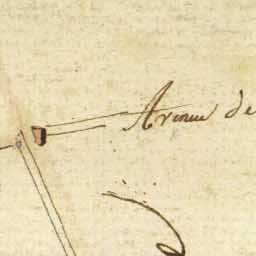 Avenue de